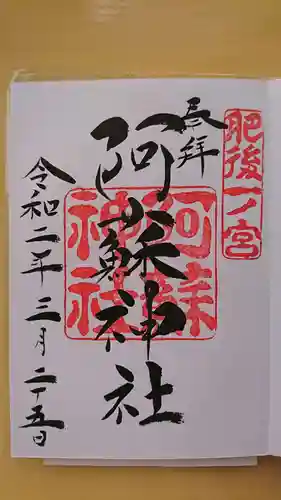 肥後一ノ宮
奉拝
阿蘇神社
阿蘇神社
令和二年三月二十五日